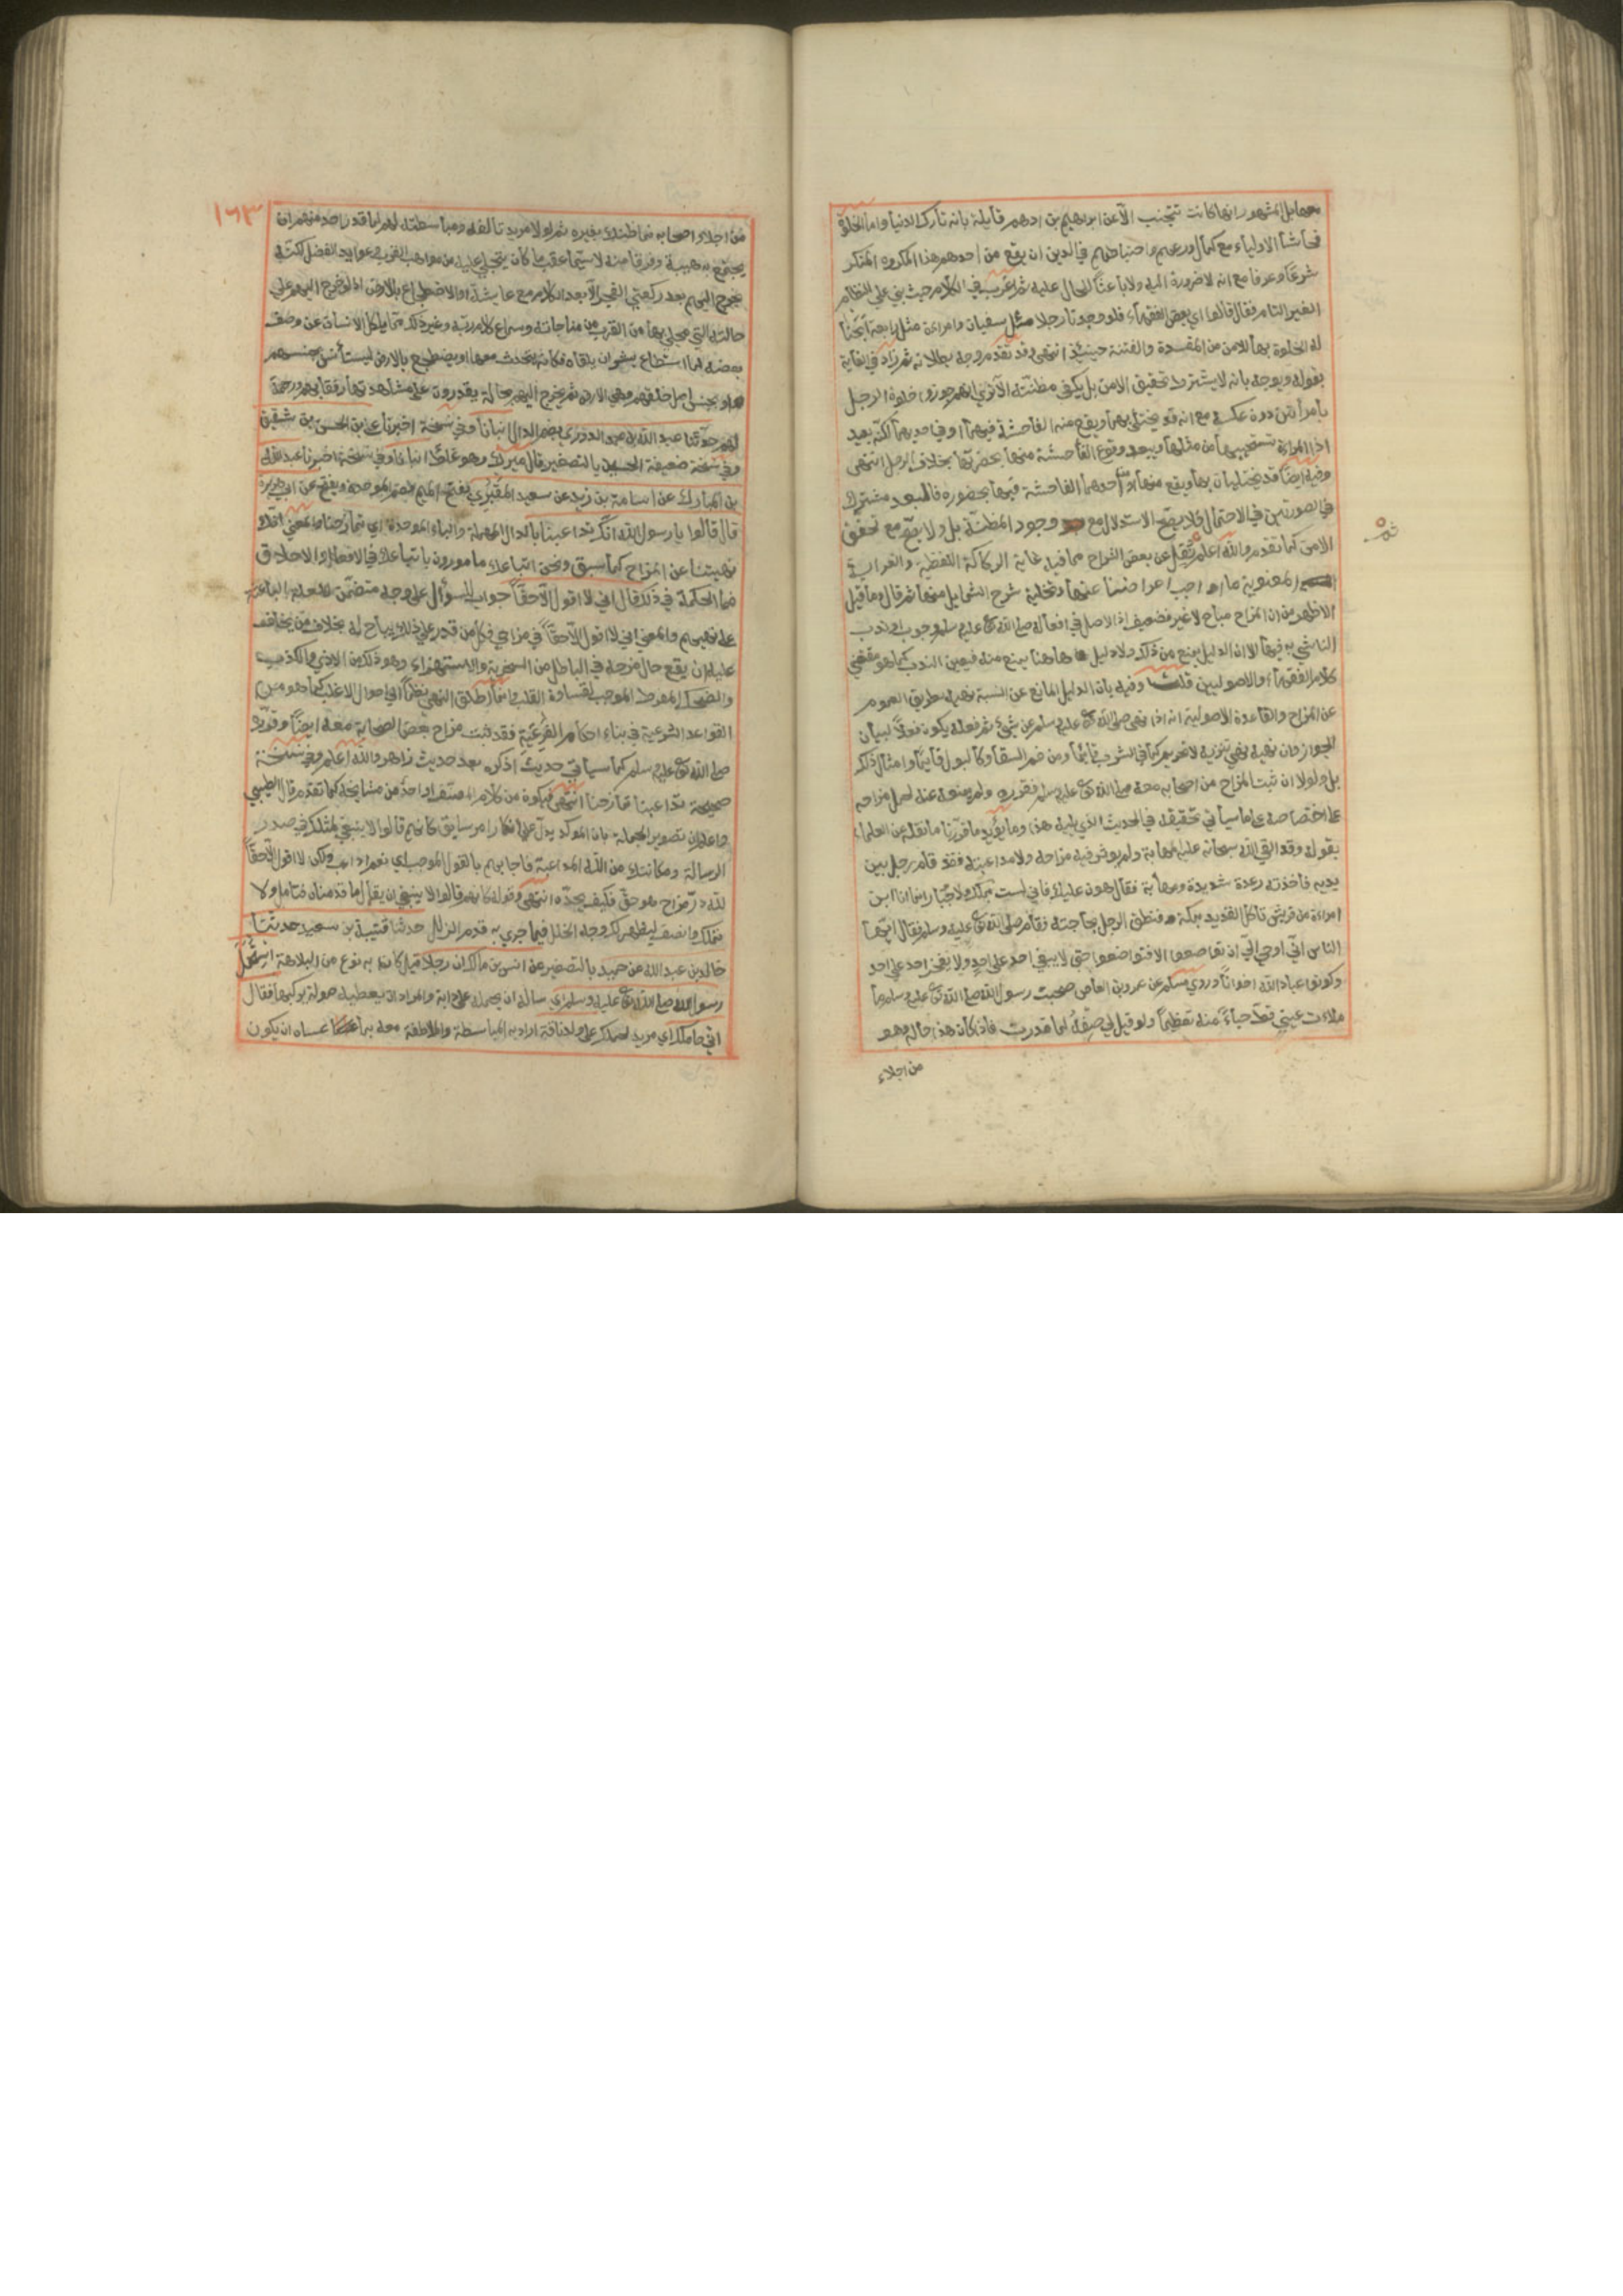 معها بل المشهور انها كانت تتجنب الا عن ابراهيم بن ادهم قايلة بانه تارك الدنيا واما الخلوة
فحاشا الاولياء مع كمال ورعهم واحتياطهم في الدين ان يقع من احدهم هذا المكروه المنكر
شرعا وعرفا مع انه لا ضرورة اليه ولا باعثا للحال عليه ثم اغرب في الكلام حيث بني علي النظام
الغير التام فقال قالوا اي بعض الفقهاء فلو وجدنا رجلا مثل سفيان وامراءة مثل رابعة ابحنا
له الخلوة بها للامن من المفسدة والفتنة حينيذ انتهي وقد تقدم وجه بطلانه ثم زاد في الغاية
بقوله ويوجه بانه لا يشترط تحقيق الامن بل يكفي مظنته الا تري انهم جوزوا خلوة الرجل
بامراتين دون عكسه مع انه قد يختلي بهما ويقع منه الفاحشة فيهما او في احديهما لكنه بعيد
اذا المراءة تستحيي من مثلها ويبعد وقوع الفاحشة منها بحضرتها بخلاف الرجل انتهي
وفيه ايضا قد يختليان بها ويقع منهما او من احدهما الفاحشة فيها بحضوره فالبعد مشترك
في الصورتين في الاحتمال فلا يصح الاستدلال مع وجود المظنة بل ولا يصح مع تحقق
الامن كما تقدم والله اعلم ثم نقل عن بعض الشراح مما فيه غاية الركاكة اللفظية والغرابة
المعنوية ما اوجب اعراضنا عنها وتخلية شرح الشمايل منها ثم قال وما قيل
الاظهر من ان المزاح مباح لا غير فضعيف اذ الاصل في افعاله صلي الله تع عليه وسلم وجوب او ندب
الناشي به فيها الا ان الدليل يمنع من ذلك ولا دليل هاهنا يمنع منه فيعين الندب كما هو مقتضي
كلام الفقهاء والاصوليين قلت وفيه بان الدليل المانع عن النسبة نهيه بطريق العموم
عن المزاح والقاعدة الاصولية انه اذا نهي صلي الله تع عليه وسلم عن شيئ ثم فعله يكون فعله لبيان
الجواز وان نهيه نهي تنزيه لا تحريم كما في الشرب قايما ومن فم السقا وكالبول قايما وامثال ذلك
بل ولولا ان ثبت المزاح من اصحابه معه صلي الله تع عليه وسلم فقرره ولم يمنعه عنه لحمل مزاحه
علي اختصاصه علي ما سيأتي تحقيقه في الحديث الذي يليه هذا ومما يؤيد ما قررنا ما نقله عن العلماء
بقوله وقد القي الله سبحانه عليه المهابة ولم يوثر فيه مزاحه ولا مداعبته فقد قام رجل بين
يديه فاخذته رعدة شديدة ومهابة فقال هون عليك فاني لست بملك ولا جبار انما انا ابن
امراءة من قريش تاكل القديد بمكة فنطق الرجل بحاجته فقام صلي الله تع عليه وسلم فقال ايها
الناس اني اوحي الي ان تواضعوا الا فتواضعوا حتي لا يبغي احد علي احد ولا يفخر احد علي احد
وكونوا عباد الله اخوانا وروي مسلم عن عمرو بن العاص صحبت رسول الله صلي الله تع عليه وسلم ما
ملاءت عيني قط حياء منه تعظيما ولو قيل لي صفه لما قدرت فاذا كان هذا حاله وهو
من اجلاء
١٦٣
من اجلاء اصحابه فما ظنك بغيره ثم لولا مزيد تالفه ومباسطته لهم لما قدر احد منهم ان
يجتمع به هيبة وفرقا منه لا سيما عقب ما كان يتجلي عليه من مواهب القرب وعوايد الفضل لكنه
يخرج اليهم بعد ركعتي الفجر الا بعد الكلام مع عايشة او الاضطجاع بالارض اذ لو خرج اليهم علي
حالته التي تجلي بها من القرب من مناجاته وسماع كلام ربه وغير ذلك مما يكل الانسان عن وصف
بعضه لما استطاع بشر ان يلقاه فكان يتحدث معها او يضطجع بالارض ليستأنس بجنسهم
او بجنس اصل خلقهم وهي الارض ثم يخرج اليهم بحالة يقدرون علي مشاهدتها رفقا بهم ورحمة
لهم حدثنا عبد الله بن محمد الدوري بضم الدال انبانا وفي نسخة اخبرنا علي بن الحسن بن شقيق
وفي نسخة ضعيفة الحسين بالتصغير قال ميرك وهو غلط انبانا وفي نسخة اخبرنا عبد الله
بن المبارك عن اسامة بن زيد عن سعيد المقبري بفتح الميم فضم الموحدة ويفتح عن ابي هريرة
قال قالوا يا رسول الله انك تداعبنا بالدال المهملة والباء الموحدة اي تمازحنا والمعني انك
نهيتنا عن المزاح كما سبق ونحن اتباعك مامورون باتباعك في الافعال والاخلاق
فما الحكمة في ذلك قال اني لا اقول الا حقا جواب للسؤال علي وجه متضمن للعلة الباعثة
علي نهيهم والمعني اني لا اقول الا حقا في مزاحي فكل من قدر علي ذلك يباح له بخلاف من يخاف
عليه ان يقع حال مزحه في الباطل من السخرية والاستهزاء ونحو ذلك من الاذي والكذب
والضحك المفرط الموجب لقساوة القلب وانما اطلق النهي نظرا الي احوال الاغلب كما هو من
القواعد الشرعية في بناء احكام الفرعية فقد ثبت مزاح بعض الصحابة معه ايضا وقرره
صلي الله تع عليه وسلم كما سيأتي حديث اذكره بعد حديث زاهر والله اعلم وفي نسخة
صحيحة تداعبنا تمازحنا انتهي فيكون من كلام المصنف او احد من مشايخه كما تقدم قال الطيبي
واعلم ان تصوير الجملة بان الموكد يدل علي انكار امر سابق كانهم قالوا لا ينبغي لمثلك في صدر
الرسالة ومكانتك من الله المداعبة فاجابهم بالقول الموجب اي نعم اداعب ولكن لا اقول الا حقا
لله در مزاح هو حق فكيف بجده انتهي وقوله كانهم قالوا لا ينبغي ان يقال لما قدمناه فتامل ولا
تملك وانصف ليظهر لك وجه الخلل فيما جري به قدم الزلل حدثنا قتيبة بن سعيد حدثنا
خالد بن عبد الله عن حميد بالتصغير عن انس بن مالك ان رجلا قيل كان به نوع من البلاهة استحمل
رسول الله صلي الله تع عليه وسلم اي ساله ان يحمله علي دابة والمراد ان يعطيه حمولة يركبها فقال
اني حاملك اي مريد لحملك علي ولد ناقة اراد به المباسطة والملاطفة معه بما عساه ان يكون